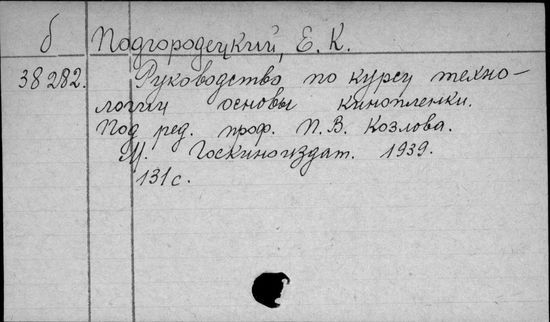 б Подгородецкий, Е. К.
38282. Руководство по курсу техно-
логии основы кинопленки.
Под ред. проф. П. В. Козлова.
М. Госкиноиздат. 1939.
131 с.